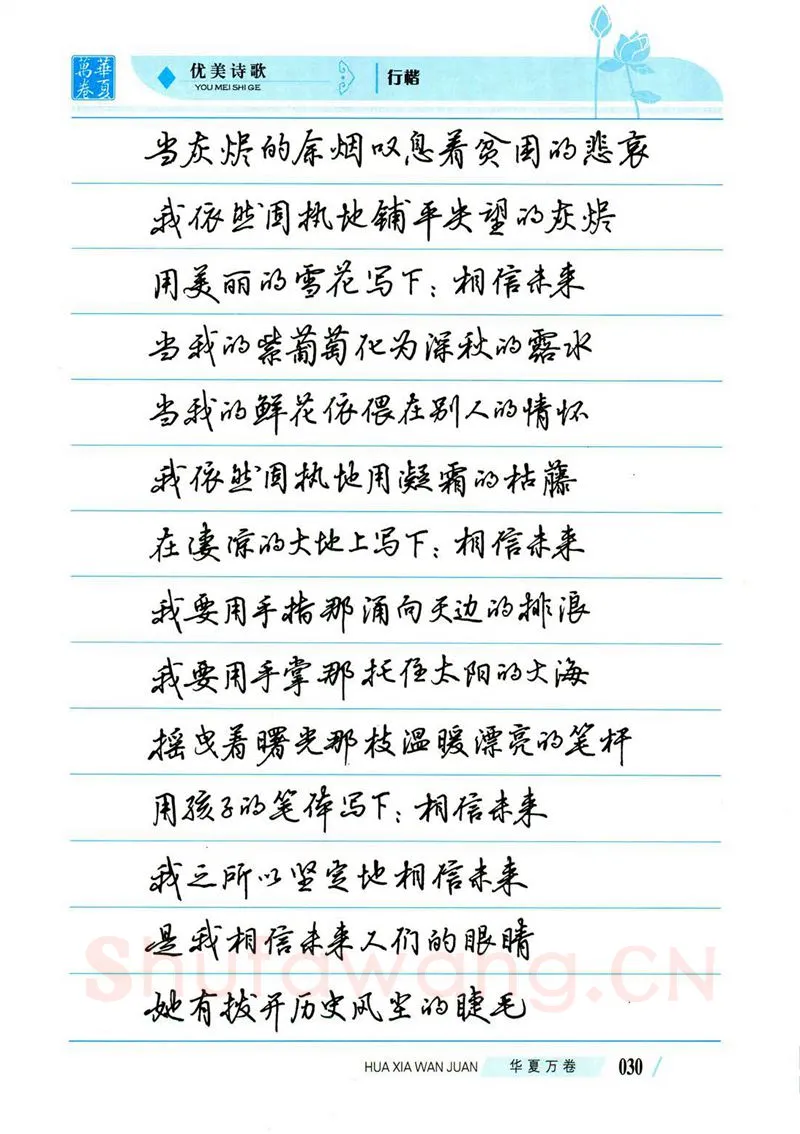 華夏萬卷
优美诗歌
YOU MEI SHI GE
行楷
当灰烬的余烟叹息着贫困的悲哀
我依然固执地铺平失望的灰烬
用美丽的雪花写下：相信未来
当我的紫葡萄化为深秋的露水
当我的鲜花依偎在别人的情怀
我依然固执地用凝霜的枯藤
在凄凉的大地上写下：相信未来
我要用手指那涌向天边的排浪
我要用手掌那托住太阳的大海
摇曳着曙光那枝温暖漂亮的笔杆
用孩子的笔体写下：相信未来
我之所以坚定地相信未来
是我相信未来人们的眼睛
她有拨开历史风尘的睫毛
Shufawang.CN
HUA XIA WAN JUAN
华夏万卷
030